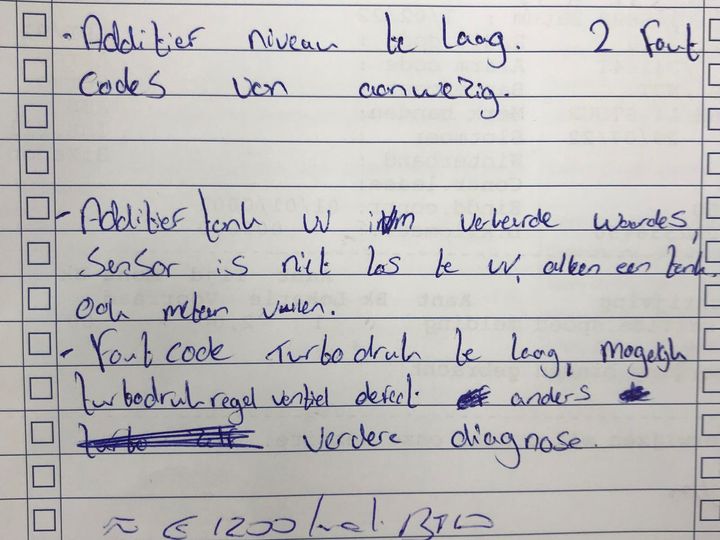 - Additief niveau te laag. 2 fout
codes van aanwezig.
- Additief tank VV ivm verkeerde waardes,
Sensor is niet los te VV, alleen een tank.
Ook meteen vullen.
- Foutcode turbodruk te laag, mogelijk
turbodrukregel ventiel defect. anders
verdere diagnose.
≈ € 1200 incl. BTW